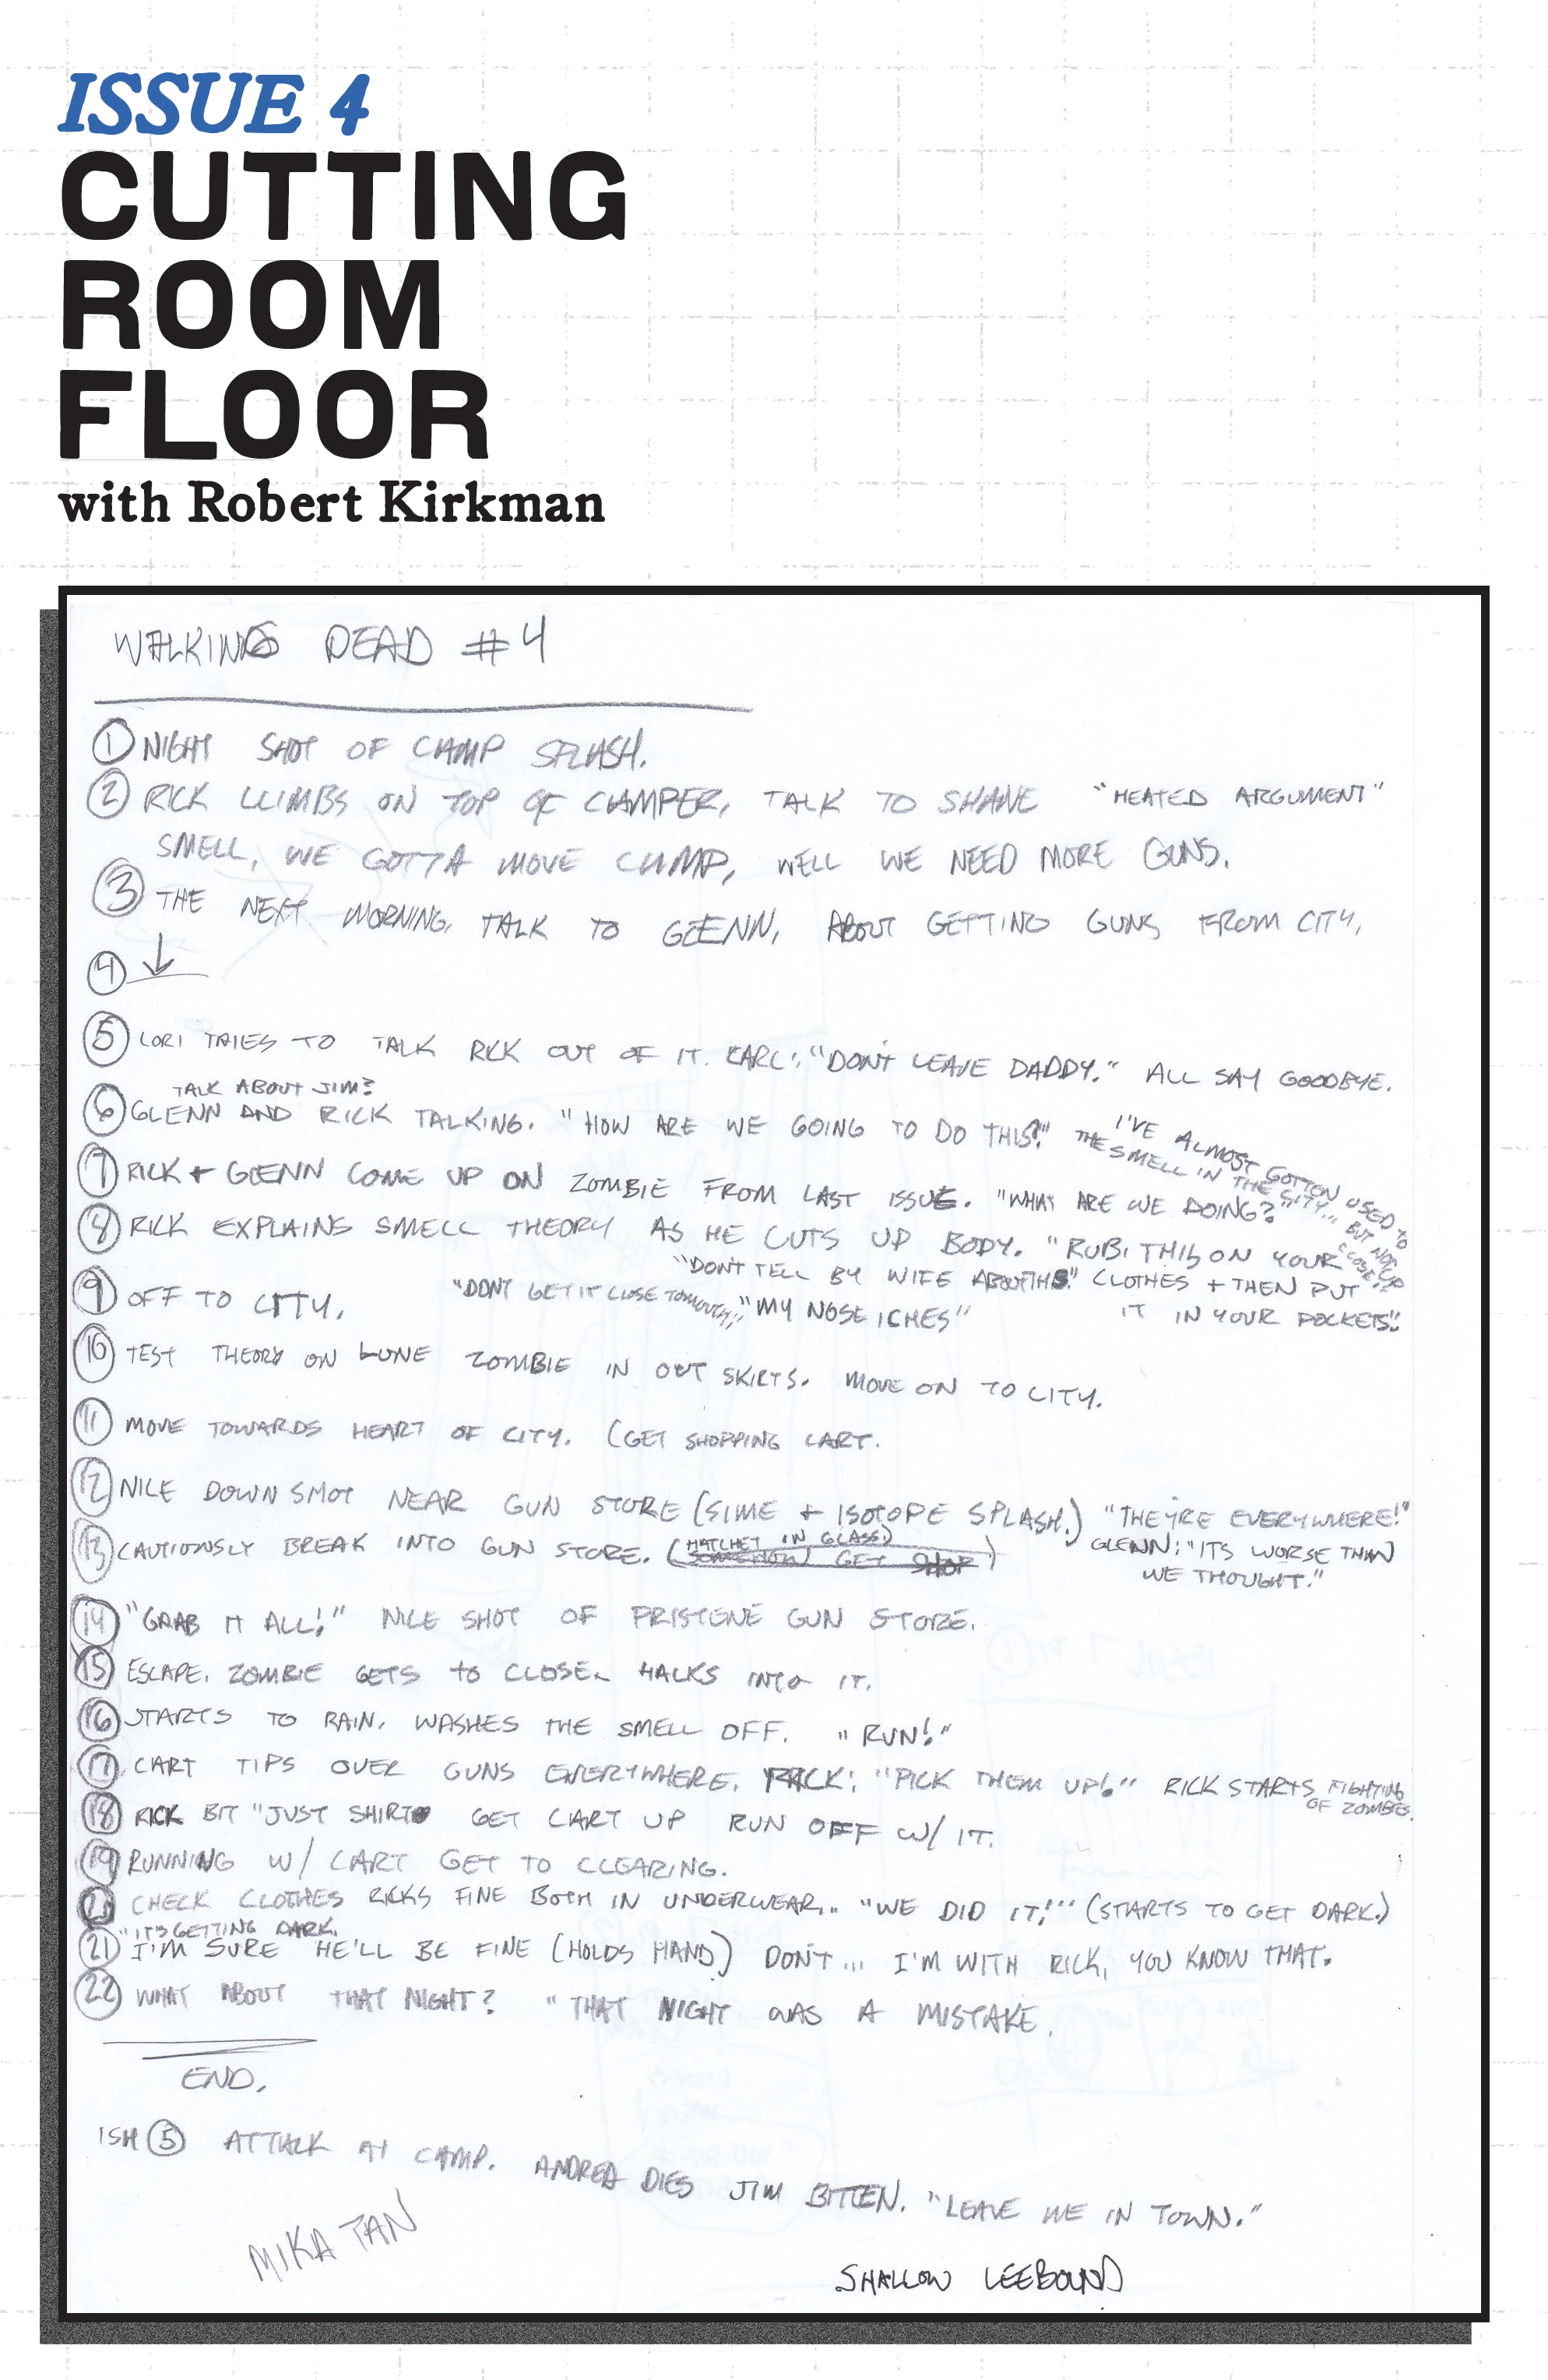 ISSUE 4
CUTTING
ROOM
FLOOR
with Robert Kirkman
WALKING DEAD #4
① NIGHT SHOT OF CAMP SPLASH.
② RICK CLIMBS ON TOP OF CAMPER, TALK TO SHANE "HEATED ARGUMENT"
SMELL, WE GOTTA MOVE CAMP, WELL WE NEED MORE GUNS.
③ THE NEXT MORNING, TALK TO GLENN, ABOUT GETTING GUNS FROM CITY,
④ ↓
⑤ LORI TRIES TO TALK RICK OUT OF IT. CARL: "DON'T LEAVE DADDY." ALL SAY GOODBYE.
TALK ABOUT JIM?
⑥ GLENN AND RICK TALKING. "HOW ARE WE GOING TO DO THIS?" I'VE ALMOST GOTTEN USED TO
THE SMELL IN THE CITY... BUT NOT UP CLOSE."
⑦ RICK + GLENN COME UP ON ZOMBIE FROM LAST ISSUE. "WHAT ARE WE DOING?"
⑧ RICK EXPLAINS SMELL THEORY AS HE CUTS UP BODY. "RUB THIS ON YOUR
"DON'T TELL BY WIFE ABOUT THIS." CLOTHES + THEN PUT
⑨ OFF TO CITY. "DON'T GET IT CLOSE TO MOUTH," "MY NOSE ICHES" IT IN YOUR POCKETS."
⑩ TEST THEORY ON LONE ZOMBIE IN OUT SKIRTS. MOVE ON TO CITY.
⑪ MOVE TOWARDS HEART OF CITY. (GET SHOPPING CART.
⑫ NICE DOWN SHOT NEAR GUN STORE (SIME + ISOTOPE SPLASH.) "THEY'RE EVERYWHERE!"
⑬ CAUTIOUSLY BREAK INTO GUN STORE. (HATCHET IN GLASS) GLENN: "ITS WORSE THAN
SOMEHOW GET SHOP)
WE THOUGHT."
⑭ "GRAB IT ALL!" NICE SHOT OF PRISTENE GUN STORE.
⑮ ESCAPE. ZOMBIE GETS TO CLOSE. HALKS INTO IT.
⑯ STARTS TO RAIN, WASHES THE SMELL OFF. "RUN!"
⑰ CART TIPS OVER GUNS EVERYWHERE. RICK: "PICK THEM UP!" RICK STARTS FIGHTING
OF ZOMBIES.
⑱ RICK BIT "JUST SHIRT" GET CART UP RUN OFF W/ IT.
⑲ RUNNING W/ CART GET TO CLEARING.
⑳ CHECK CLOTHES RICKS FINE BOTH IN UNDERWEAR... "WE DID IT!" (STARTS TO GET DARK.)
"IT'S GETTING DARK.
㉑ I'M SURE HE'LL BE FINE (HOLDS HAND) DON'T... I'M WITH RICK, YOU KNOW THAT.
㉒ WHAT ABOUT THAT NIGHT? "THAT NIGHT WAS A MISTAKE.
END.
ISH ⑤ ATTACK AT CAMP. ANDREA DIES JIM BITTEN. "LEAVE ME IN TOWN."
MIKA TAN
SHALLOW LEEBOUND